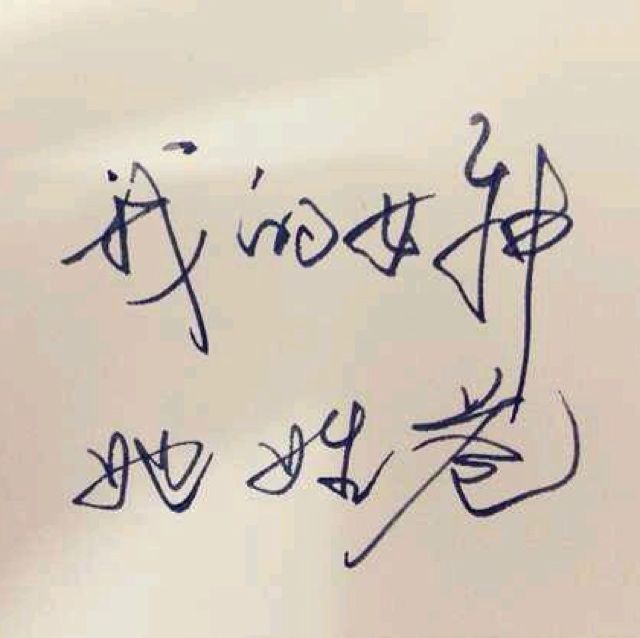 我的女神
她姓卷